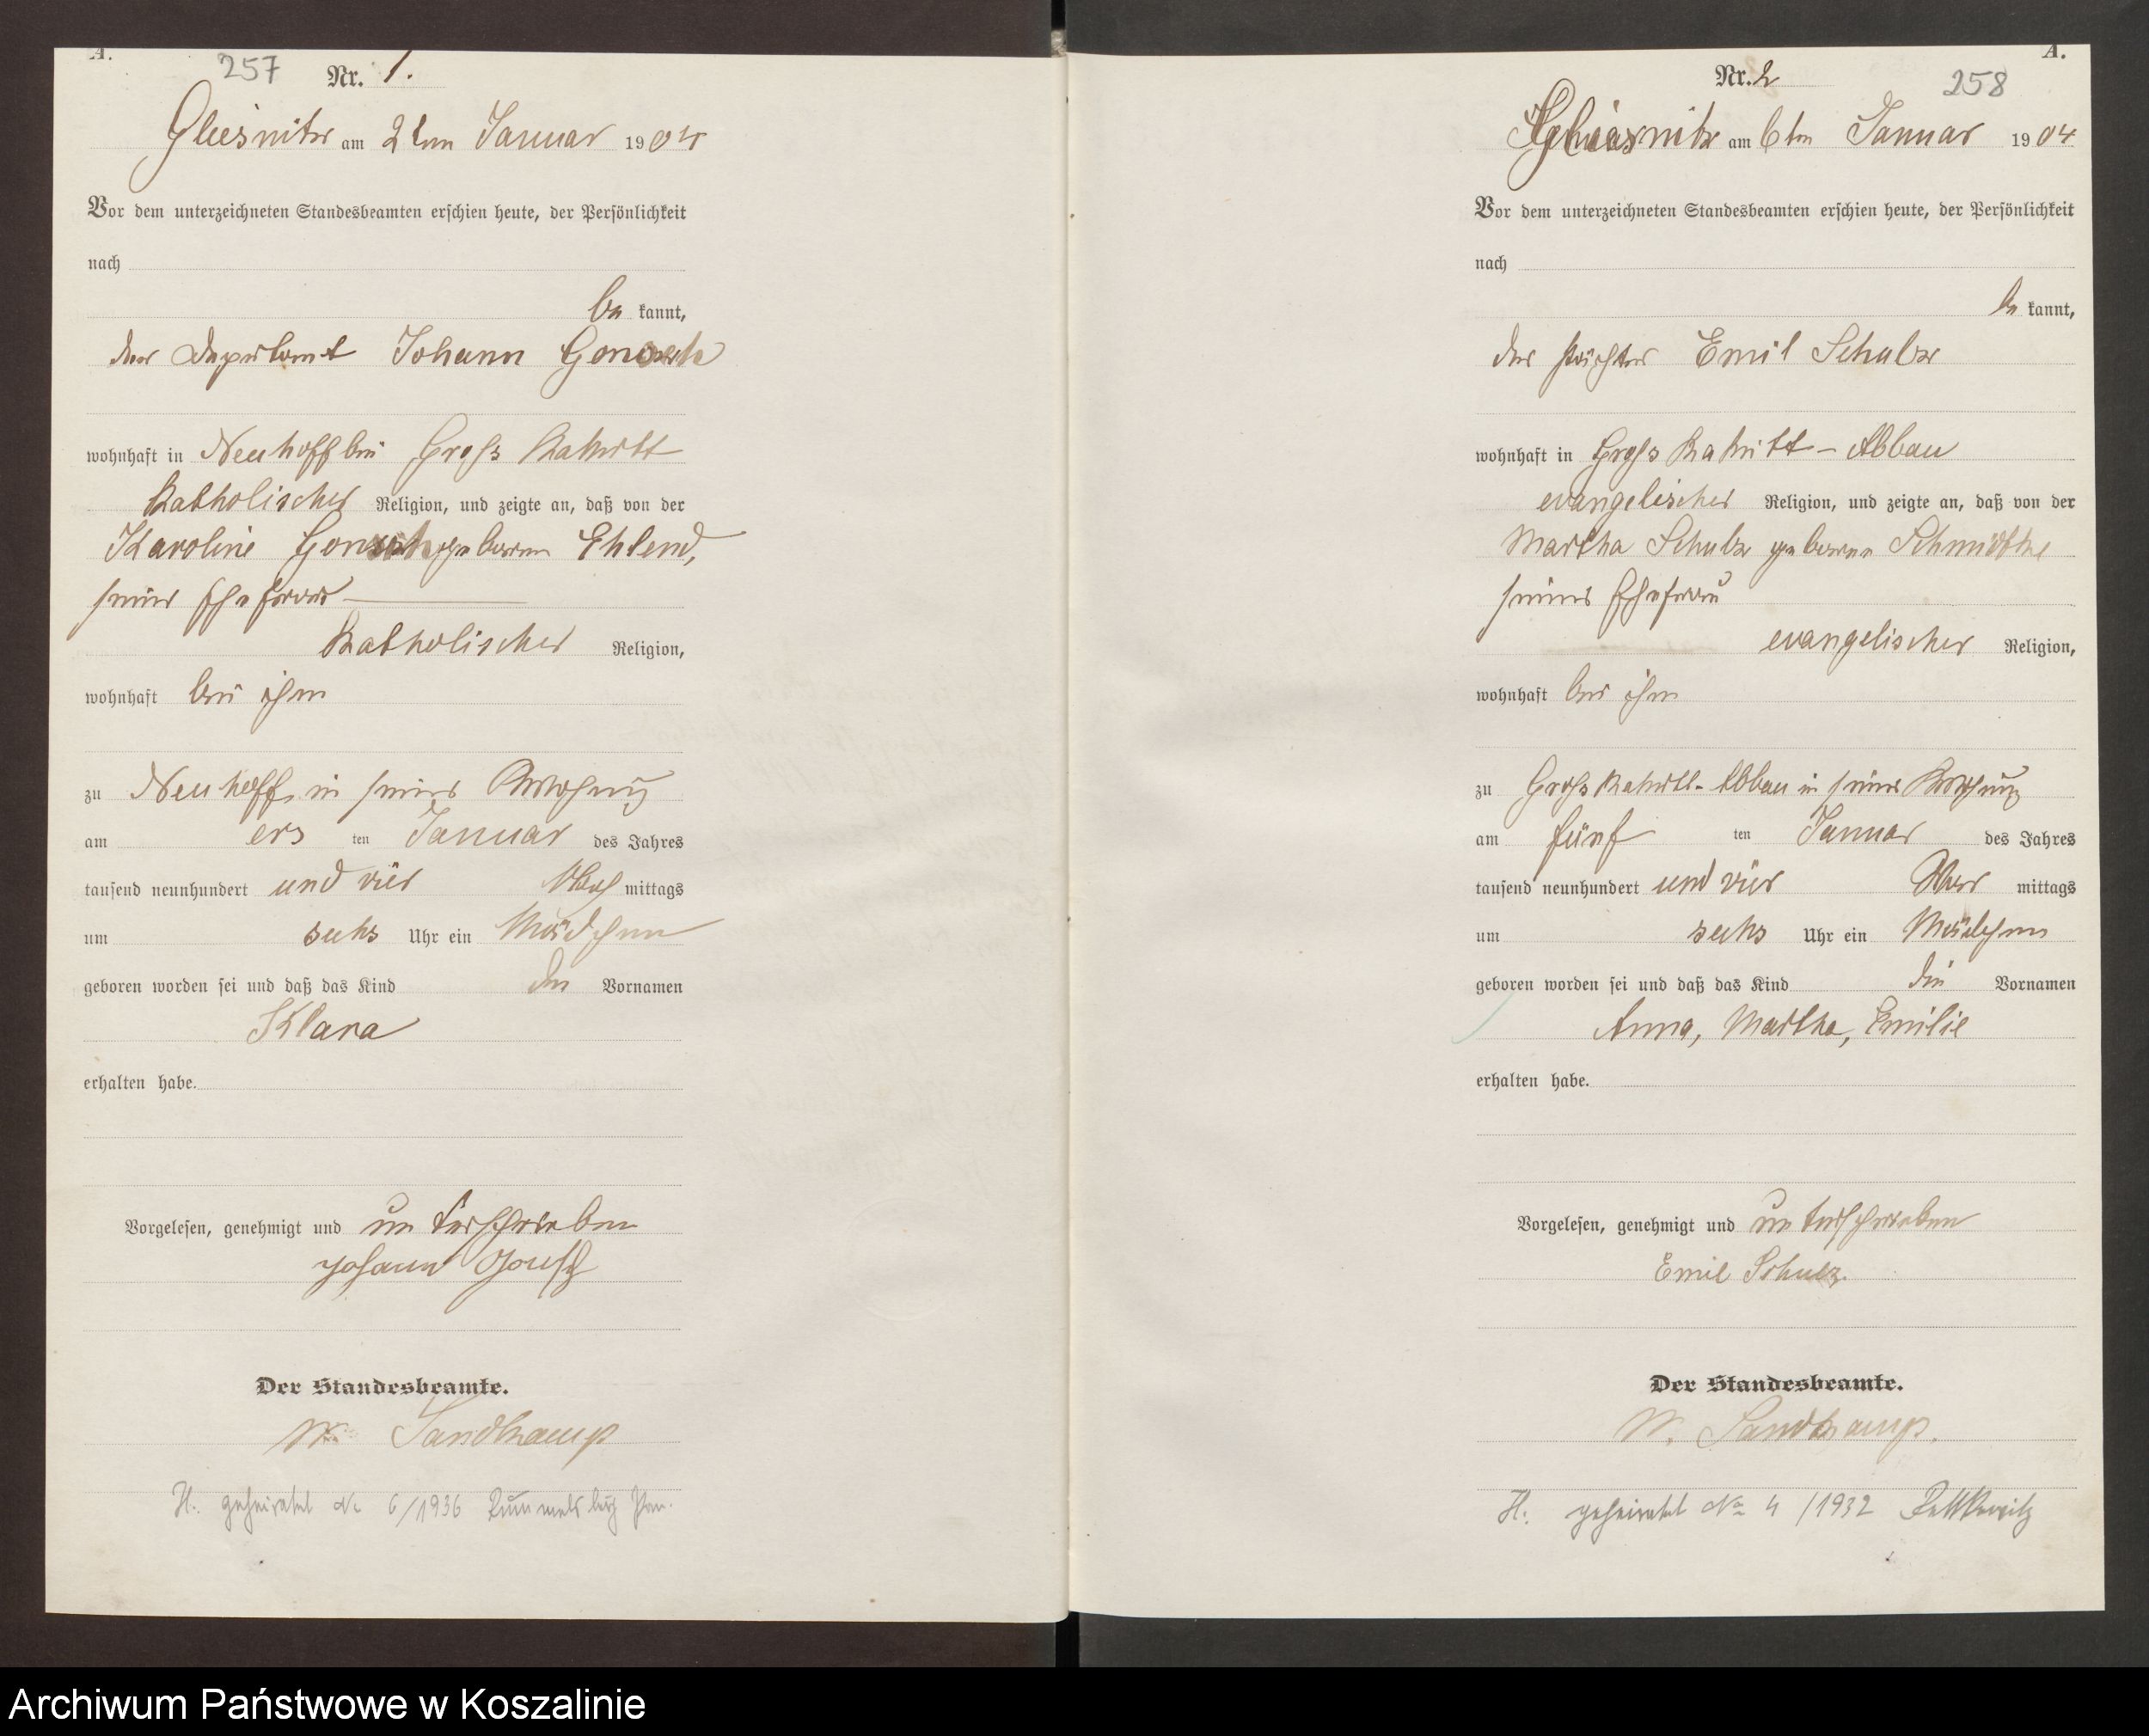 A.
257
Nr. 1.
Gliesnitz am 2ten Januar 1904
Vor dem unterzeichneten Standesbeamten erschien heute, der Persönlichkeit
nach
be kannt,
der Deputant Johann
wohnhaft in Neuhoff bei Groß Rakitt
katholischer Religion, und zeigte an, daß von der
Karoline geborene Ehlend,
seiner Ehefrau
katholischer Religion,
wohnhaft bei ihm
zu Neuhoff, in seiner Wohnung
am ers ten Januar des Jahres
tausend neunhundert und vier Nach mittags
um sechs Uhr ein Mädchen
geboren worden sei und daß das Kind den Vornamen
Klara
erhalten habe.
Vorgelesen, genehmigt und unterschrieben
Johann
Der Standesbeamte.
W. Sandkamp
H. geheiratet Nr 6/1936 Rummelsburg Pom.
A.
Nr. 2
258
Gliesnitz am 6ten Januar 1904
Vor dem unterzeichneten Standesbeamten erschien heute, der Persönlichkeit
nach
be kannt,
der Pächter Emil Schulz
wohnhaft in Groß Rakitt - Abbau
evangelischer Religion, und zeigte an, daß von der
Martha Schulz geborene Schmidtke
seiner Ehefrau
evangelischer Religion,
wohnhaft bei ihm
zu Groß Rakitt - Abbau in seiner Wohnung
am fünf ten Januar des Jahres
tausend neunhundert und vier mittags
um sechs Uhr ein Mädchen
geboren worden sei und daß das Kind die Vornamen
Anna, Martha, Emilie
erhalten habe.
Vorgelesen, genehmigt und unterschrieben
Emil Schulz.
Der Standesbeamte.
W. Sandkamp.
H. geheiratet Nr 4/1932
Archiwum Państwowe w Koszalinie